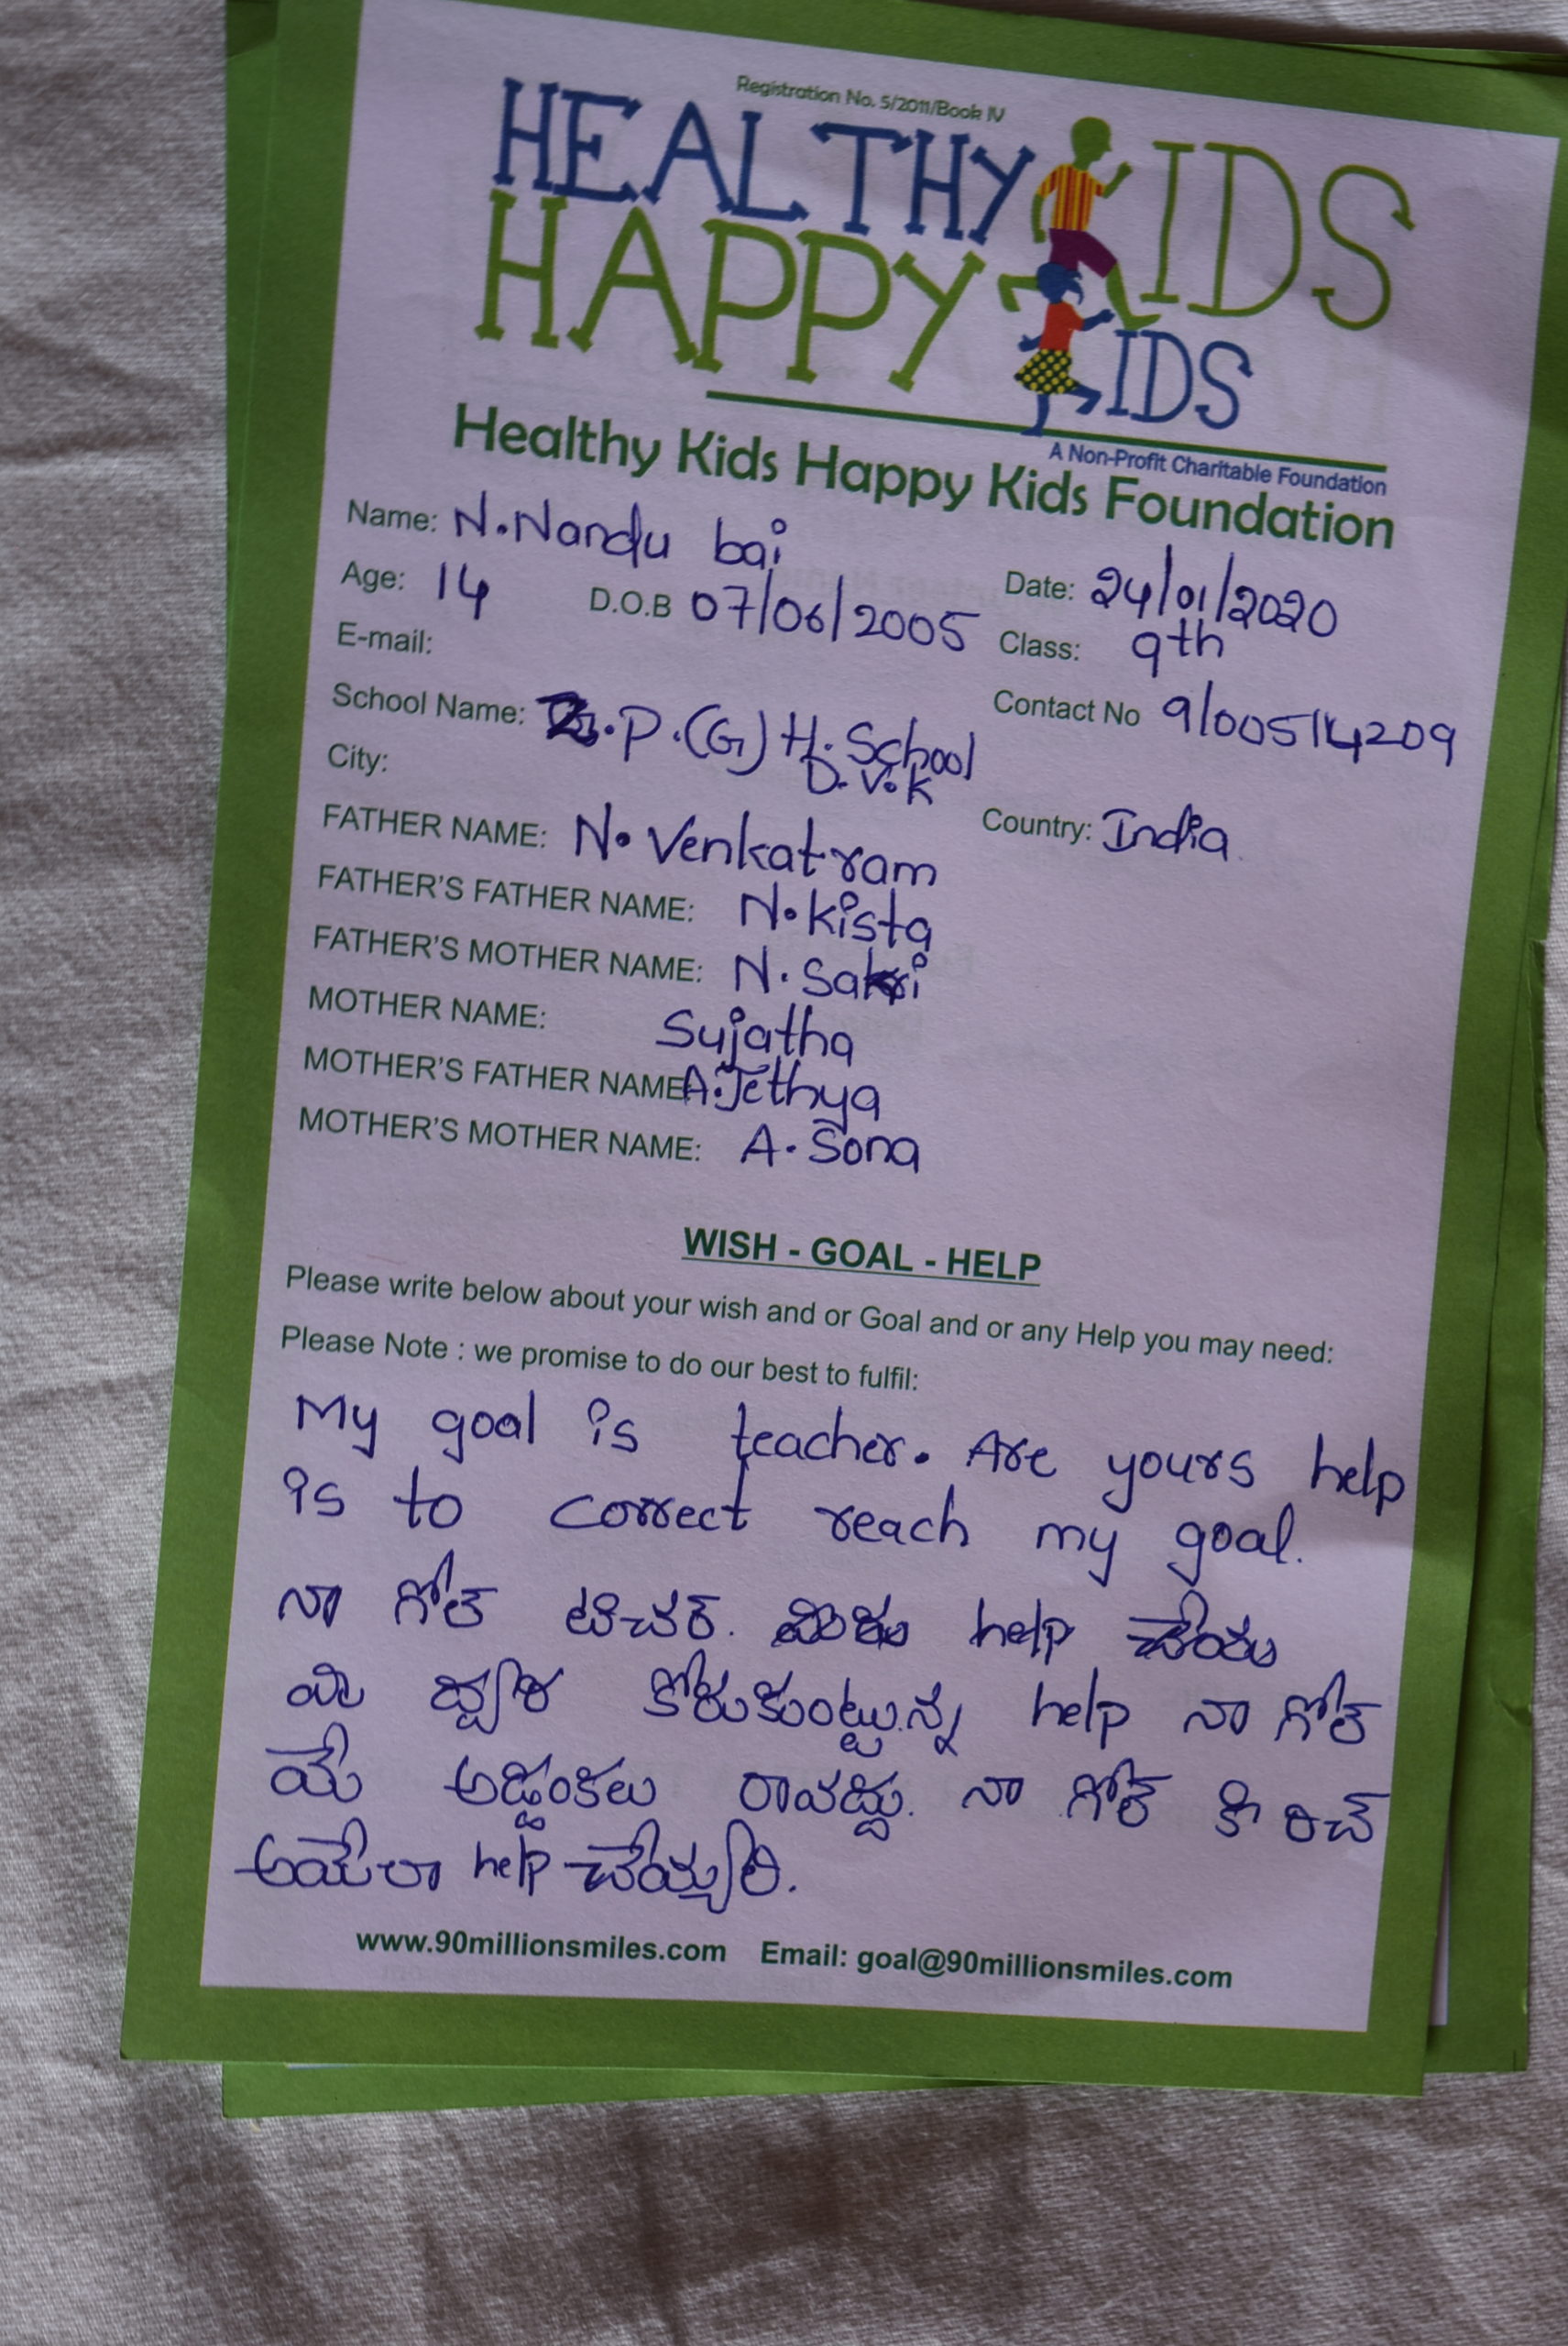 Registration No. 5/2011/Book IV
HEALTHY KIDS
HAPPY KIDS
A Non-Profit Charitable Foundation
Healthy Kids Happy Kids Foundation
Name: N. Nandu bai
Date: 24/01/2020
Age: 14 D.O.B 07/06/2005 Class: 9th
E-mail:
Contact No 9100514209
School Name: .P.(G) H. School
D.V.K
City:
Country: India
FATHER NAME: N. Venkatram
FATHER'S FATHER NAME: N. Kista
FATHER'S MOTHER NAME: N. Sakri
MOTHER NAME: Sujatha
MOTHER'S FATHER NAME A. Jethya
MOTHER'S MOTHER NAME: A. Sona
WISH - GOAL - HELP
Please write below about your wish and or Goal and or any Help you may need:
Please Note : we promise to do our best to fulfil:
My goal is teacher. Are yours help
is to correct reach my goal.
నా గోల్ టిచర్. మీరు help చేయు
మీ ద్వార కోరుకుంట్టున్న help నా గోల్
యే అడ్డంకలు రావద్దు. నా గోల్ కి రిచ్
అయేలా help చేయ్యాలి.
www.90millionsmiles.com Email: goal@90millionsmiles.com